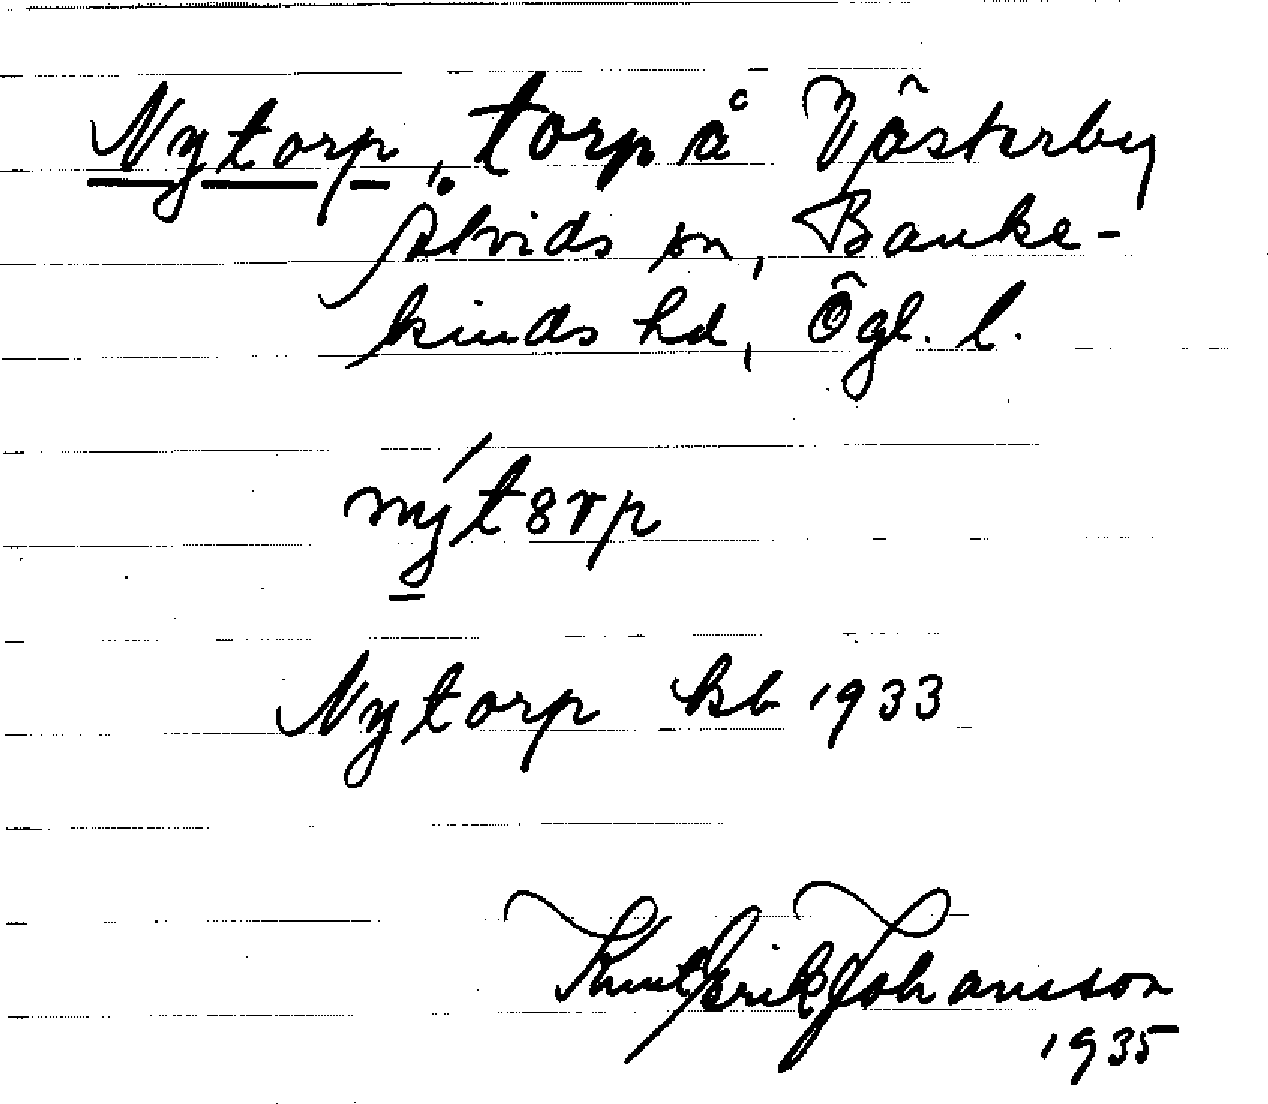 Nytorp, torp å Västerby
Åtvids sn, Banke-
kinds hd, Ögl. l.
nýt8rp
Nytorp kb 1933
Knut Erik Johansson
1935